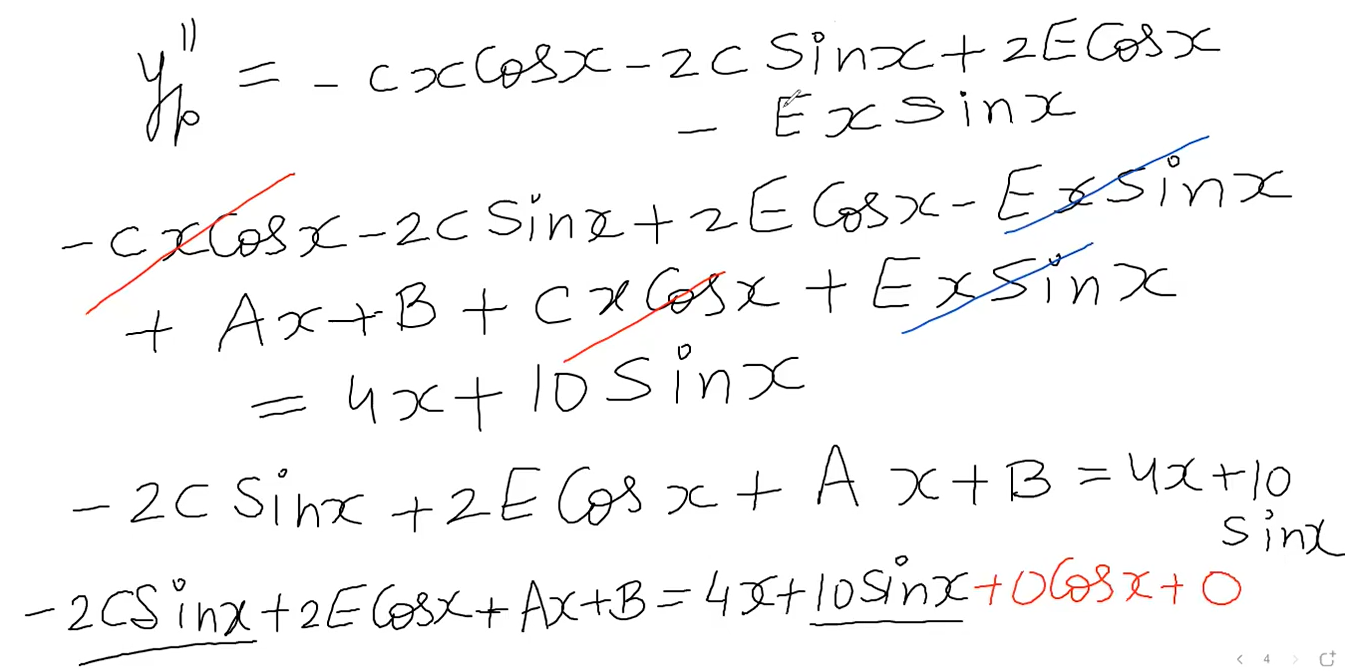 yp'' = - cxCosx - 2C Sinx + 2E Cosx
- Ex sinx
- cxCosx - 2C Sinx + 2E Cosx - Exsinx
+ Ax + B + CxCosx + ExSinx
= 4x + 10 Sinx
- 2C Sinx + 2E Cosx + Ax + B = 4x + 10
sinx
- 2CSinx + 2ECosx + Ax + B = 4x + 10Sinx + 0Cosx + 0
4